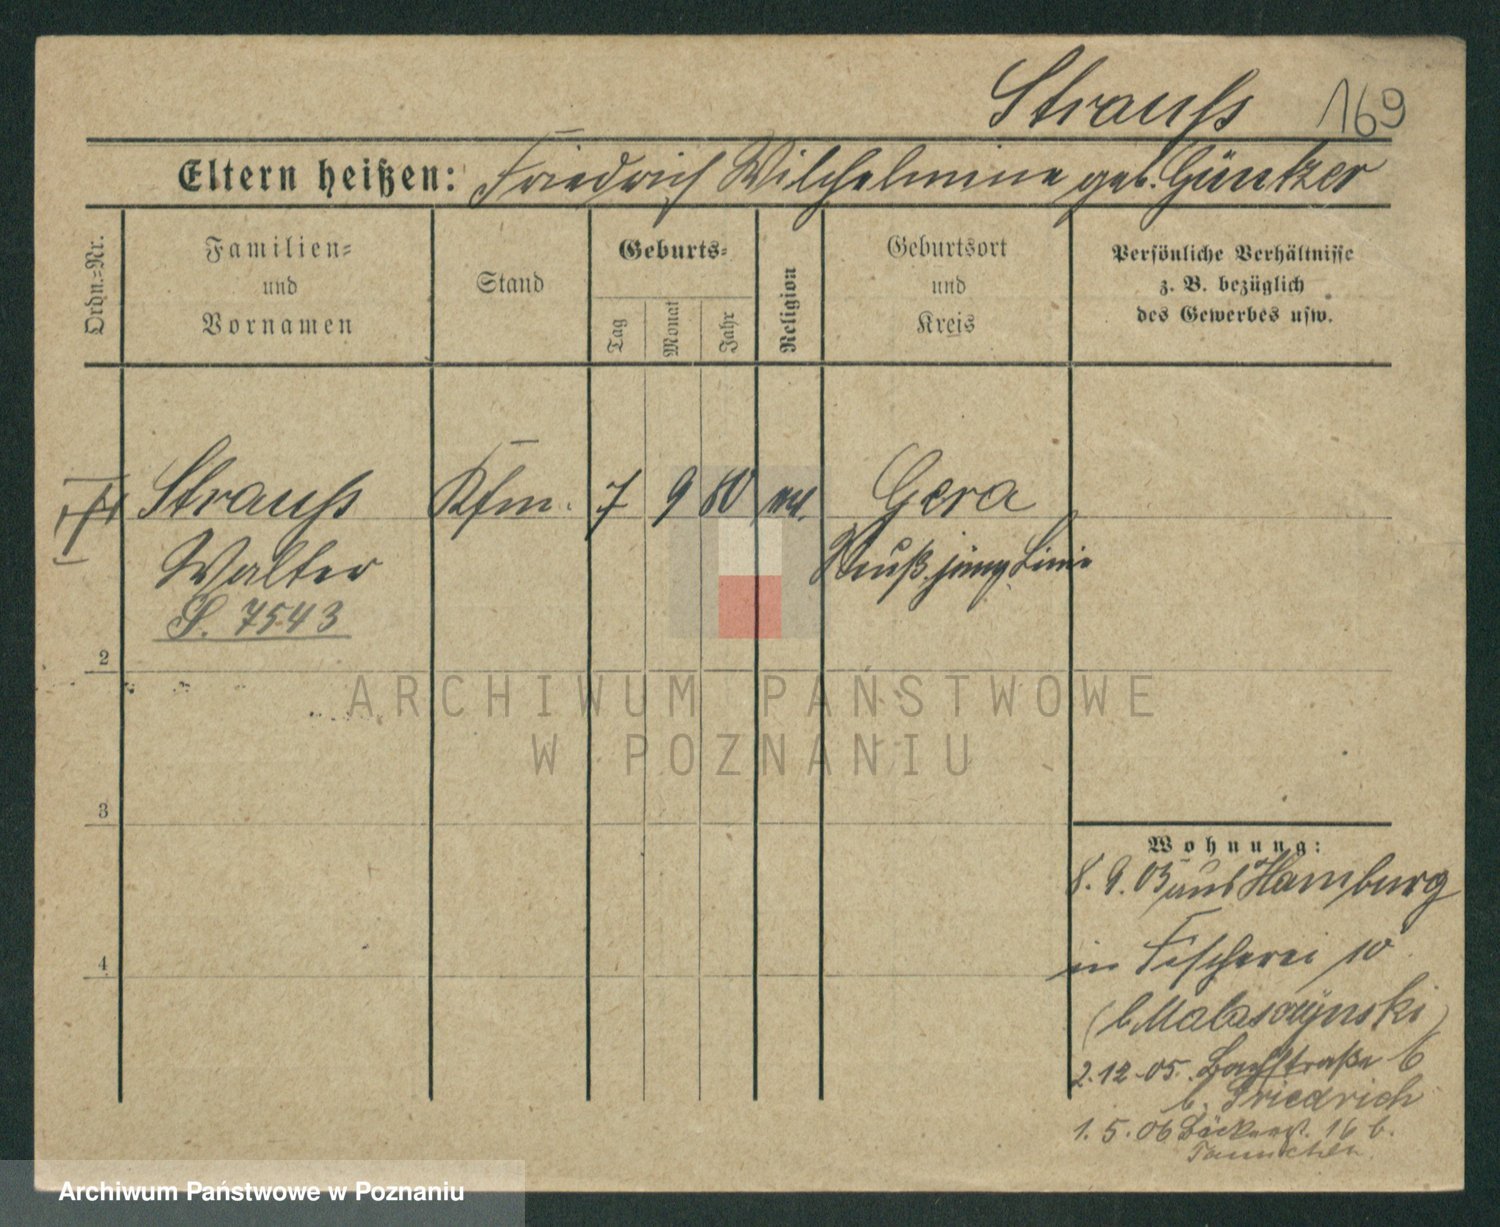 Strauss 169
Eltern heißen: Friedrich Wilhelmine geb. Güntzer
Ordn.-Nr.
Familien-
und
Vornamen
Stand
Geburts-
Tag
Monat
Jahr
Religion
Geburtsort
und
Kreis
Persönliche Verhältnisse
z. B. bezüglich
des Gewerbes usw.
Strauss Kfm. 7 9 80 Gera
Walter Reuß. jüng. Linie
S. 7543
2
3
4
ARCHIWUM PAŃSTWOWE
W POZNANIU
Wohnung:
8. 9. 05 aus Hamburg
in Fischerei 10
(b.
2.12.05. Bachstraße 6
b. Friedrich
1. 5. 06 Bäckerst. 16 b.
Archiwum Państwowe w Poznaniu